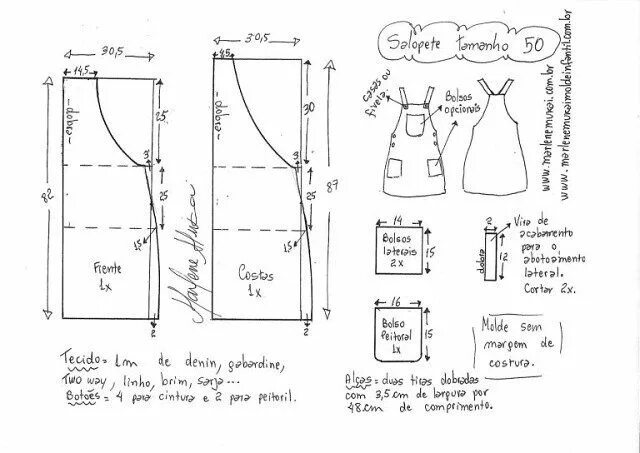 Salopete tamanho 50
30,5
14,5
dobra
25
3
25
82
1,5
Frente
1x
2
30,5
8,5
dobra
30
3
25
87
1,5
Costas
1x
2
Marlene Mukai
casas ou
fivela
Bolsos
opcionais
www.marlenemukai.com.br
www.marlenemukaimoldeinfantil.com.br
14
Bolsos
laterais
2x
15
2
dobra
12
Vira de
acabamento
para o
abotoamento
lateral.
Cortar 2x.
16
Bolso
Peitoral
1x
15
Molde sem
margem de
costura.
Tecido = 1m de denin, gabardine,
Two way, linho, brim, sarja...
Botões = 4 para cintura e 2 para peitoril.
Alças = duas tiras dobradas
com 3,5cm de largura por
48cm de comprimento.